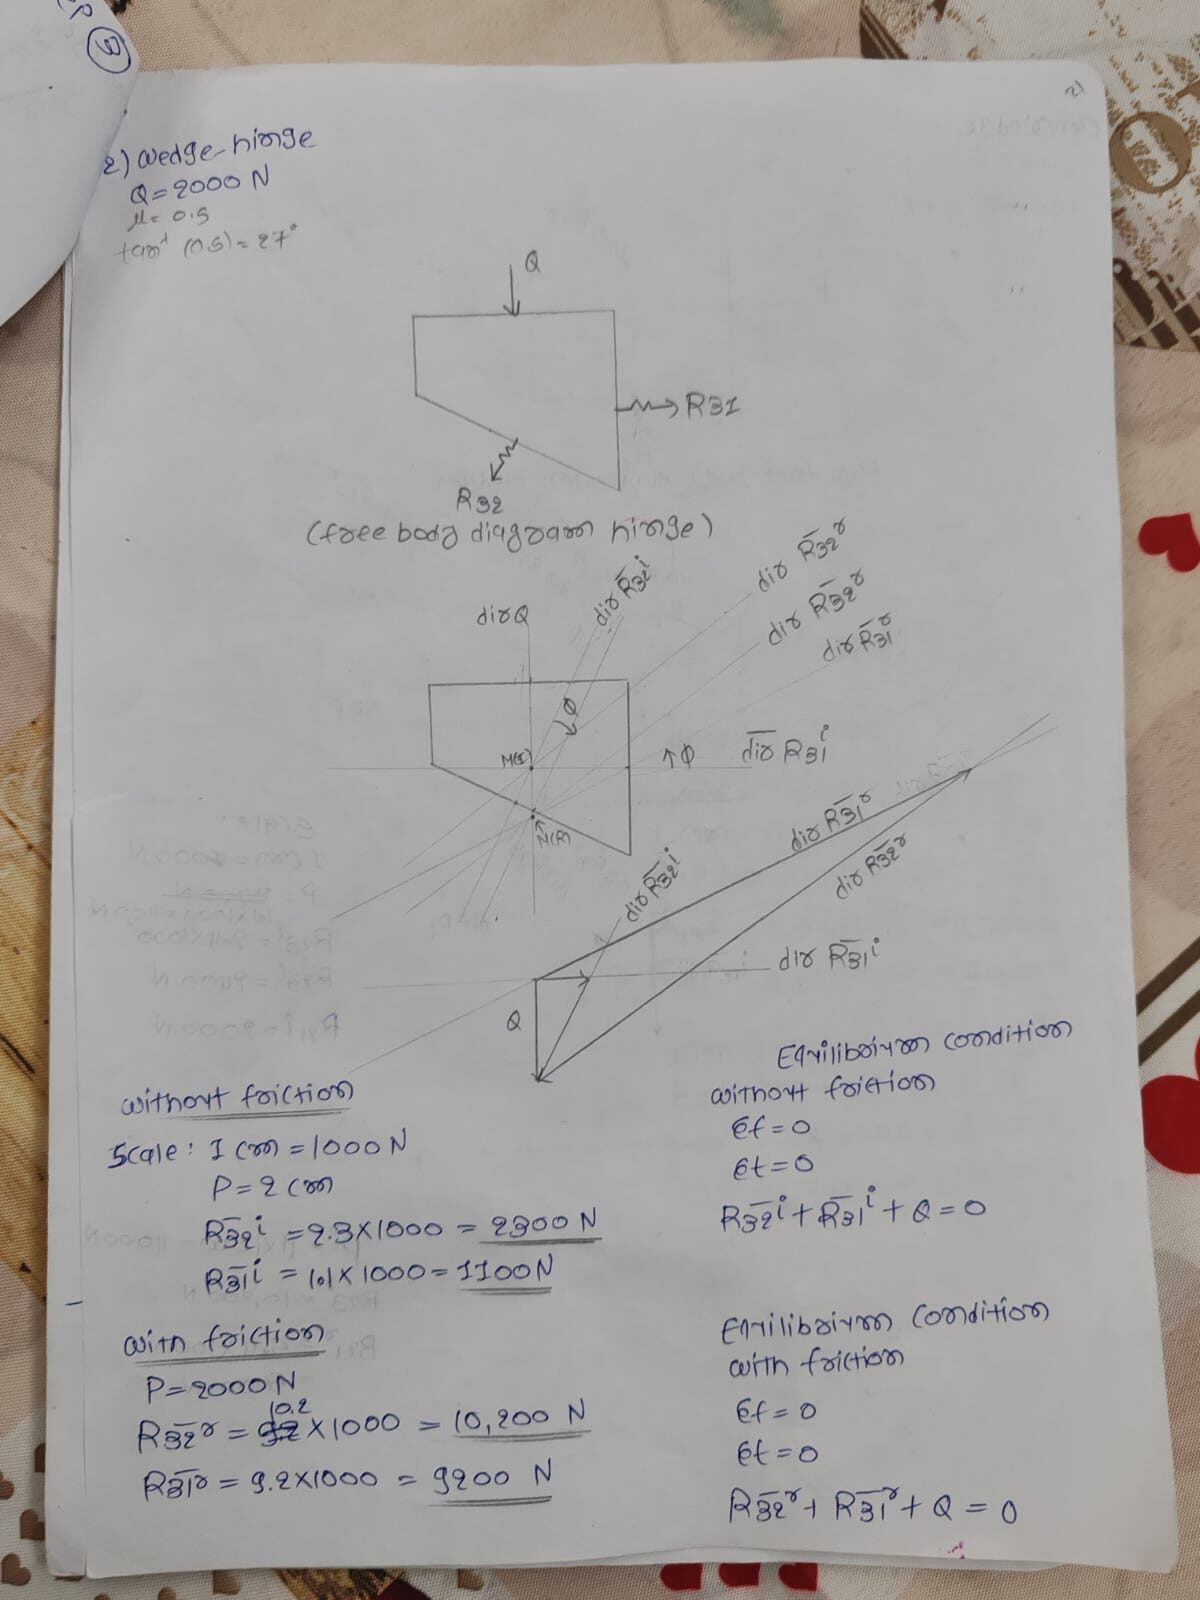 2) wedge-hinge
Q=2000 N
μ= 0.5
tan⁻¹ (0.5)=27°
Q
R31
R32
(free body diagram hinge)
dir Q
dir R̄32ⁱ
dir R̄32ʳ
dir R̄32ʳ
dir R̄31ʳ
φ
M(I)
↑φ
dir R31ⁱ
N(R)
dir R̄31ʳ
dir R̄32ʳ
dir R̄32ⁱ
dir R̄31ⁱ
Q
without friction
Scale: 1 cm = 1000 N
P=2 cm
R̄32ⁱ = 2.3×1000 = 2300 N
R̄31ⁱ = 1.1×1000 = 1100N
with friction
P=2000 N
10.2
R̄32ʳ = ×1000 = 10,200 N
R̄31ʳ = 9.2×1000 = 9200 N
Equilibrium condition
without friction
Ef=0
Et=0
R̄32ⁱ + R̄31ⁱ + Q = 0
Equilibrium condition
with friction
Ef = 0
Et = 0
R̄32ʳ + R̄31ʳ + Q = 0
2)
3